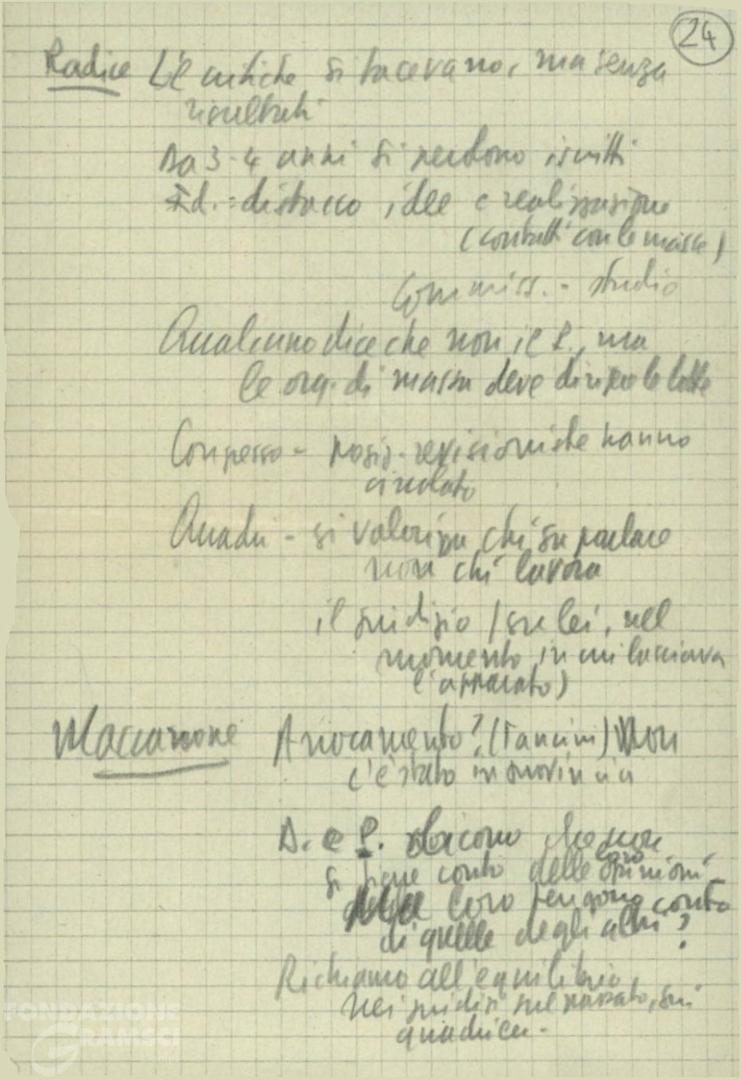 24
Radice Le critiche si facevano, ma senza
risultati
Da 3-4 anni si perdono iscritti
Id. = distacco idee e realizzazione
(contatti con le masse)
Commiss. - studio
Qualcuno dice che non il P., ma
le org. di massa deve dirigere le lotte
Congresso - posiz. revisioniste hanno
circolato
Quadri - si valorizza chi sa parlare
non chi lavora
il giudizio (su lei, nel
momento in cui lasciava
l'apparato)
Maccarrone Arroccamento? (Fancini) Non
c'è stato in provincia
D. e P. dicono che non
si tiene conto delle loro opinioni
Ma loro tengono conto
di quelle degli altri?
Richiamo all'equilibrio
nei giudizi sul passato, sui
quadri ecc.
FONDAZIONE
GRAMSCI